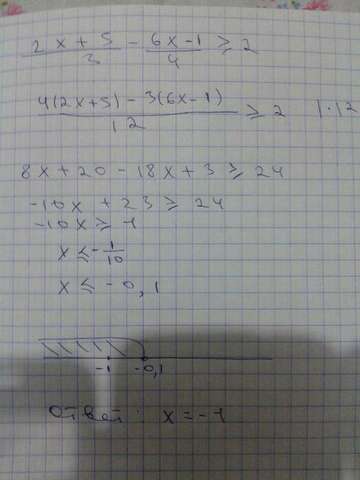 (2x+5)/3 - (6x-1)/4 ≥ 2
(4(2x+5)-3(6x-1))/12 ≥ 2 | ·12
8x+20-18x+3 ≥ 24
-10x+23 ≥ 24
-10x ≥ 1
x ≤ -1/10
x ≤ -0,1
-1 -0,1
Ответ: x=-1